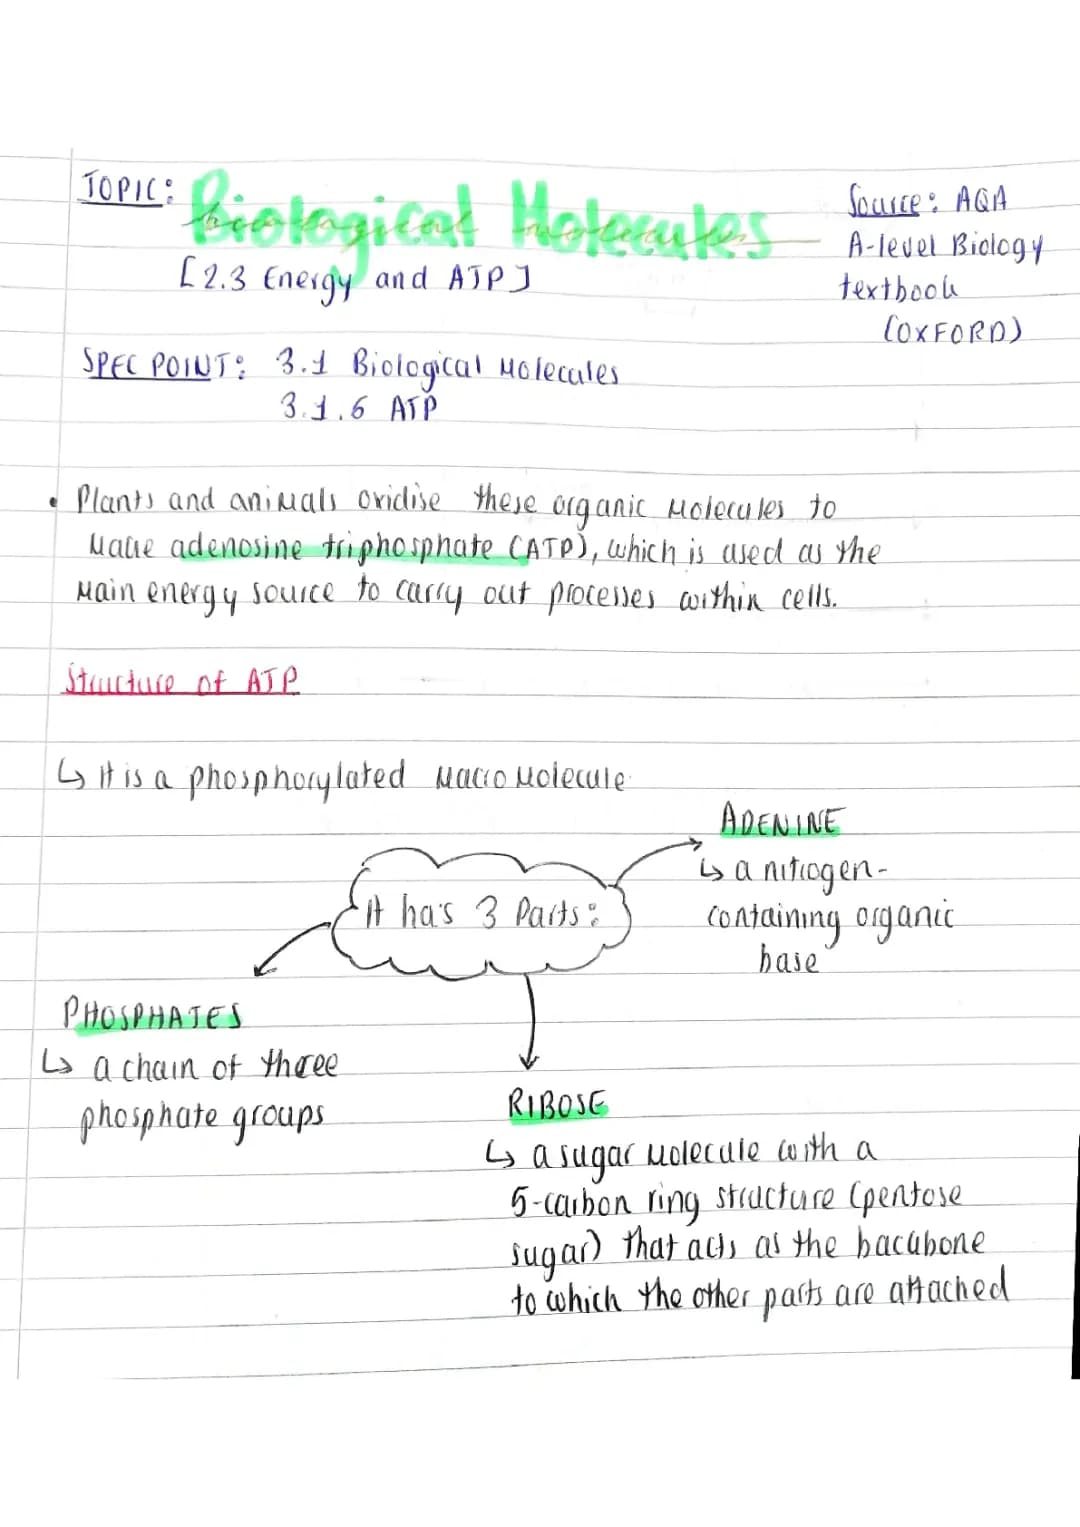 TOPIC: Biological Molecules
biological molecules
[2.3 Energy and ATP]
Source: AQA
A-level Biology
textbook
(OXFORD)
SPEC POINT: 3.1 Biological Molecules
3.1.6 ATP
• Plants and animals oxidise these organic Molecules to
Make adenosine triphosphate (ATP), which is used as the
Main energy source to carry out processes within cells.
Structure of ATP
↳ It is a phosphorylated Macro Molecule.
It has 3 Parts:
ADENINE
↳ a nitrogen-
containing organic
base
PHOSPHATES
↳ a chain of three
phosphate groups
RIBOSE
↳ a sugar Molecule with a
5-carbon ring structure (pentose
sugar) that acts as the backbone
to which the other parts are attached